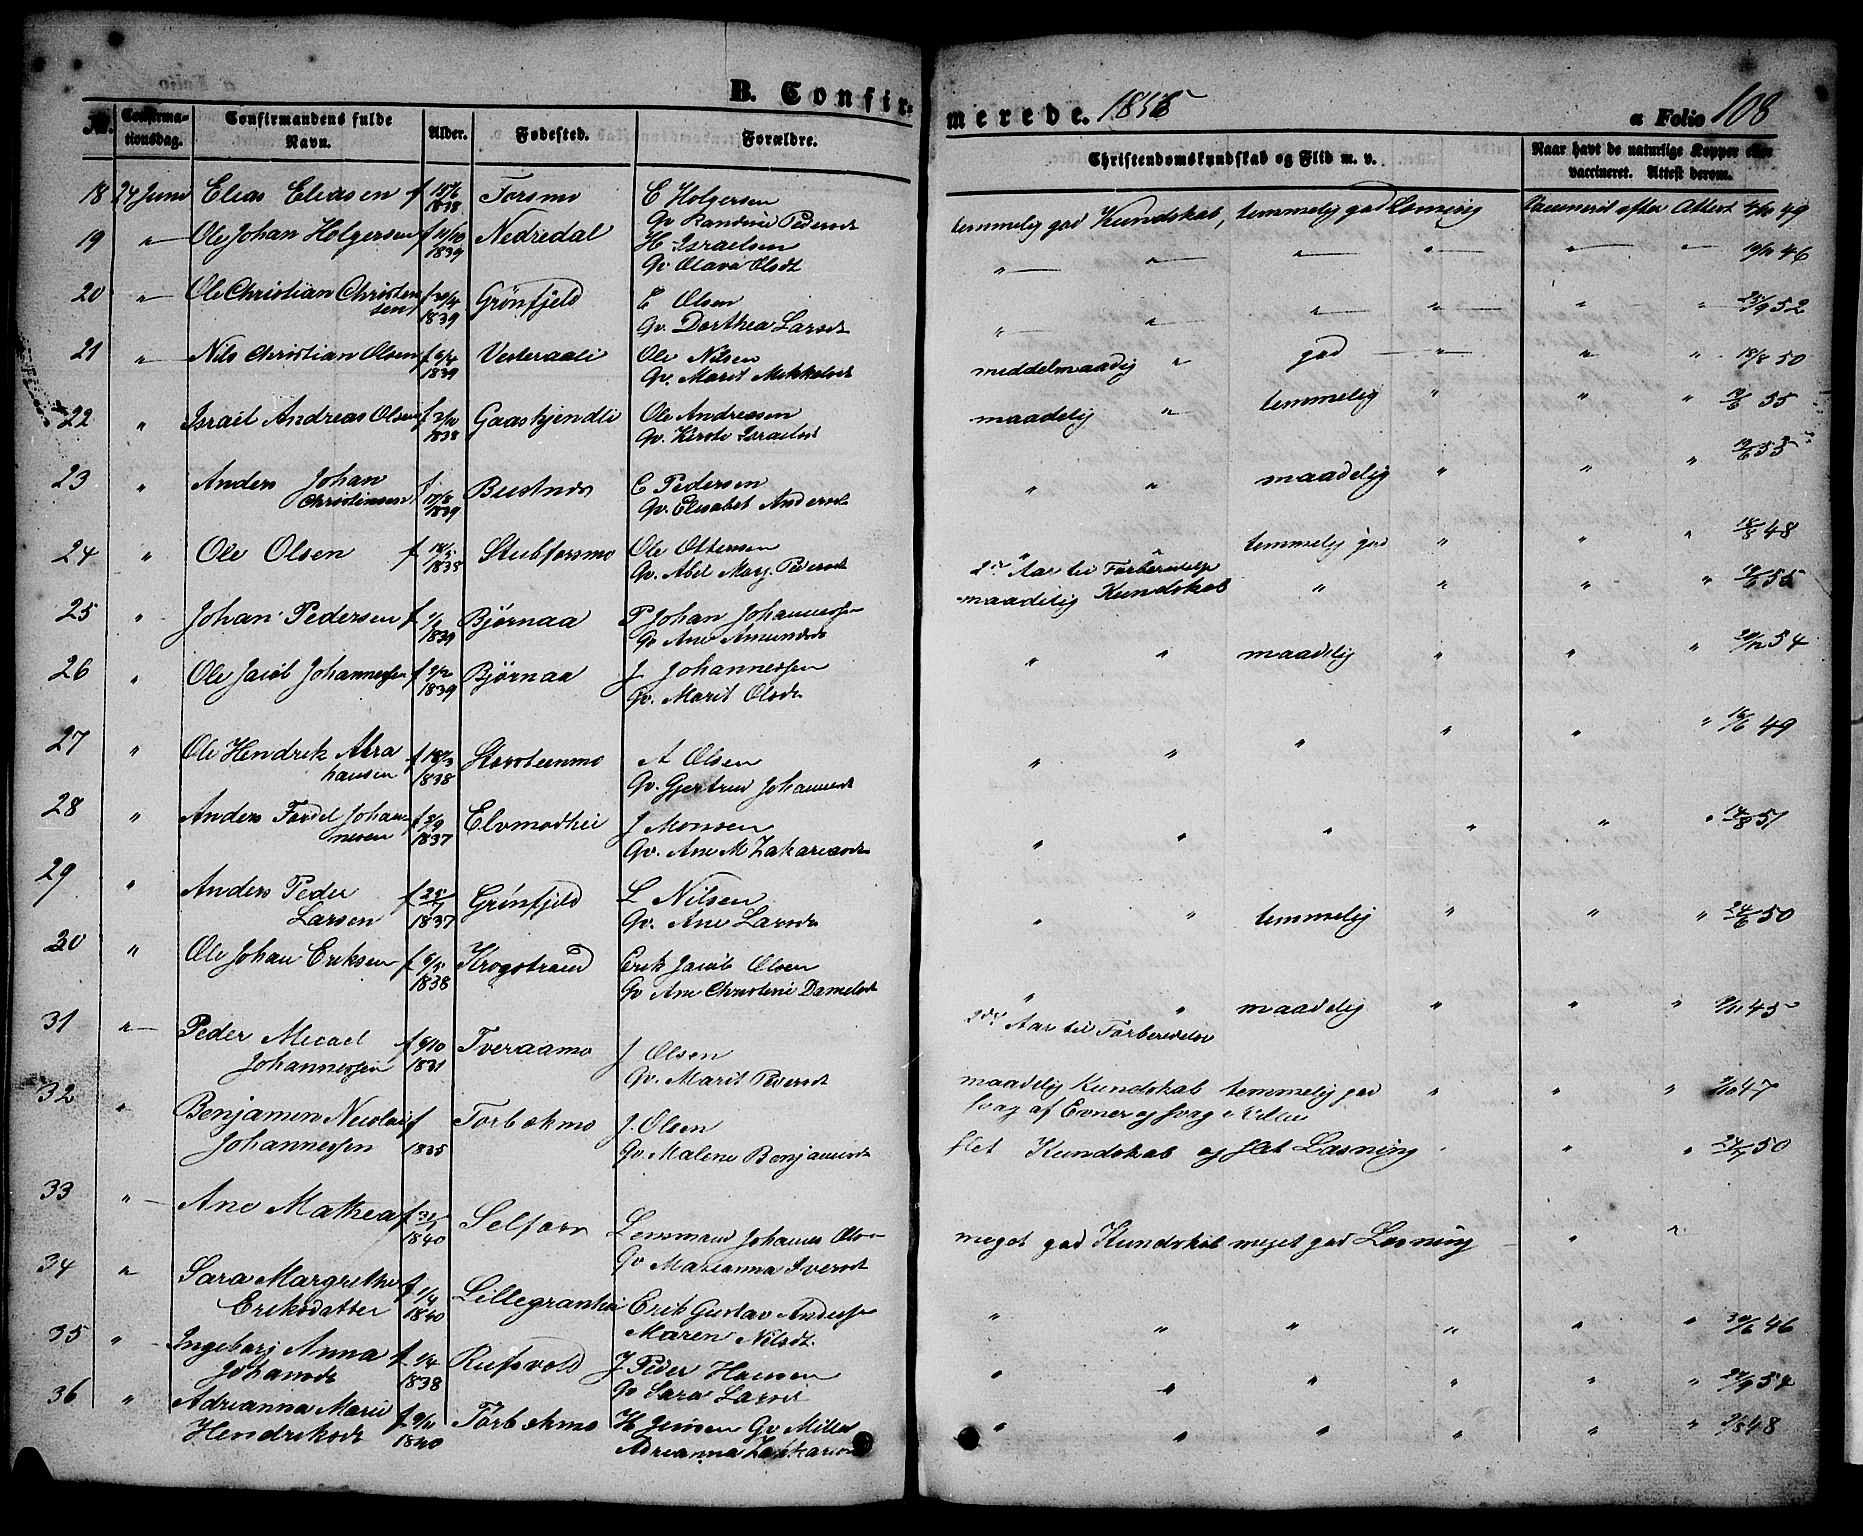 B. Confirmerede. 1855
a Folio 108
No.
Confirmationsdag.
Confirmandens fulde Navn.
Alder.
Fødested.
Forældre.
Christendomskundskab og Flid m. v.
Naar havt de naturlige Kopper eller vaccineret. Attest derom.
18 24 Juni Elias Eliasen f 1838 Forsmo E Holgersen
Gv Randine Pedersdt
temmelig god Kundskab, temmelig god Læsning Vaccineret efter Attest 49
19 " Ole Johan Holgersen f 1839 Nedredal H Israelsen
Gv Olava Olsdt
" " " " " " 46
20 " Ole Christian Christensen f 20/4 1839 Grönfjeld C Olsen
Gv Dorthea Larsdt
" " " " " " 25/9 52
21 " Nils Christian Olsen f 1839 Vesteraali Ole Nilsen
Gv. Marit Mikkelsdt
middelmaadig " god " " " 18/8 50
22 " Israel Andreas Olsen f 2/10 1838 Gaaskjendli Ole Andreasen
Gv. Kirste Israelsdt
maadelig " temmelig " " " 55
23 " Anders Johan Christensen f 1839 Bustnes C Pedersen
Gv. Elisabet Andersdt
" " maadelig " " " 55
24 " Ole Olsen f 1835 Stubforsmo Ole Ottersen
Gv. Abel Marg. Pedersdt
" temmelig god " " " 48
2det Aar til Forberedelse
25 " Johan Pedersen f 1839 Bjørnaa P Johan Johannessen
Gv Ane Amundsdt
maadelig Kundskab " " " " 55
26 " Ole Jacob Johannessen f 2/2 1839 Bjørnaa J Johannessen
Gv. Marit Olsdt
" " maadelig " " " 54
27 " Ole Hendrik Abrahamsen f 18/3 1838 Storsteenmo A Olsen
Gv. Gjertrud Johannesdt
" " " " " " 49
28 " Anders Fordel Johannesen f 1837 Elvmodhei J Monsen
Gv. Ane M Zakariasdt
" " " " " " 51
29 " Anders Peder Larsen f 1837 Grönfjeld L Nilsen
Gv. Ane Larsdt
" " temmelig " " " 24/6 50
30 " Ole Johan Eriksen f 6/5 1838 Krogstrand Erik Jacob Olsen
Gv Ane Christine Danielsdt
" " maadelig " " " 45
2det Aar til Forberedelse
31 " Peder Micael Johannessen f 6/10 1831 Tveraamo J Olsen
Gv. Marit Pedersdt
maadelig Kundskab temmelig god " " " 47
svag af Evner og svag i Viden
32 " Benjamin Nicolai Johannessen f 1835 Forbækmo J. Olsen
Gv Malene Benjaminsdt
slet Kundskab og slet Læsning " " " 50
33 " Ane Mathea f 31/1 1840 Selfors Lensmand Johannes Olsen
Gv Marianna Iversdt
meget god Kundskab meget god Læsning " "
34 " Sara Margrethe Eriksdatter f 1/4 1840 Lillegranhei Erik Gustav Anderssen
Maren Nilsdt.
" " " " " " 30/6 46
35 " Ingeborg Anna Johansdt f 1/4 1838 Rufsvold J Peder Hansen
Gv Sara Larsdt
" " " " " " 54
36 " Adrianna Marie Hendriksdt f 1840 Forbækmo H Jensen Gv Milla
Adrianna Zakarias
" " " " " " 48